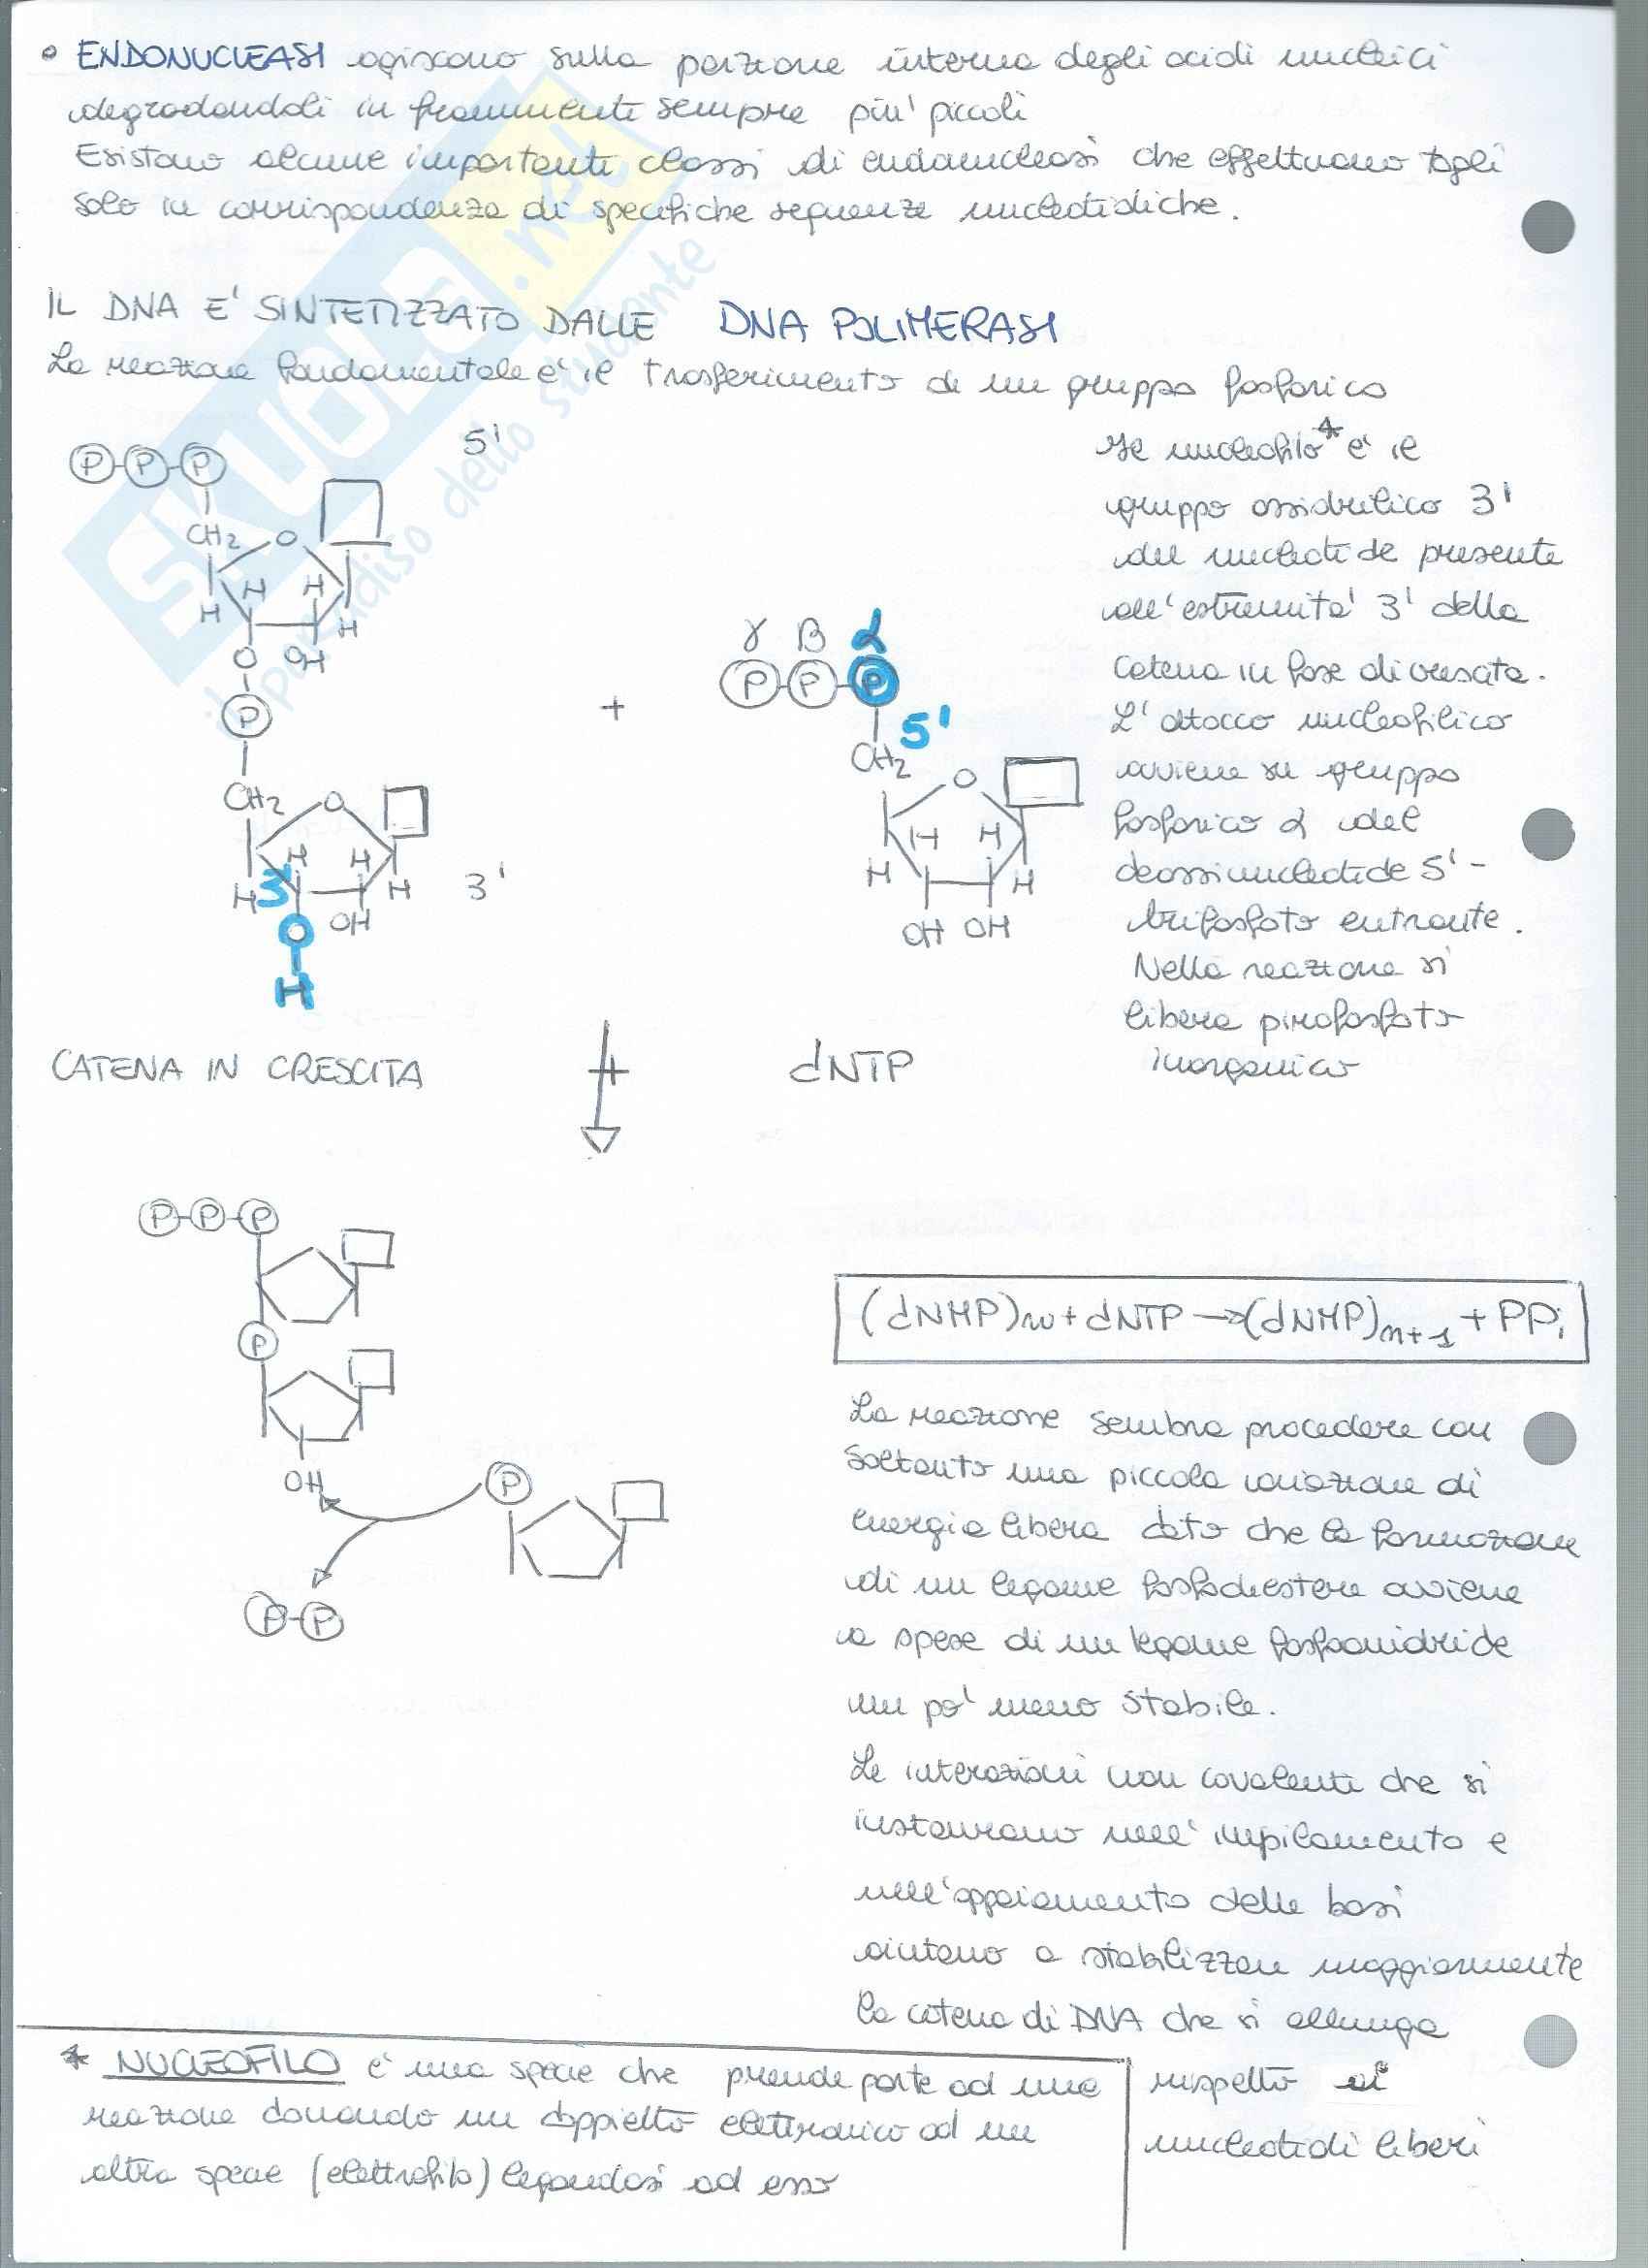 • ENDONUCLEASI agiscono sulla porzione interna degli acidi nucleici
degradandoli in frammenti sempre piu' piccoli
Esistono alcune importanti classi di endonucleasi che effettuano tagli
solo in corrispondenza di specifiche sequenze nucleotidiche.
IL DNA E' SINTETIZZATO DALLE DNA POLIMERASI
La reazione fondamentale e' il trasferimento di un gruppo fosforico
5'
P-P-P
CH2
O
H
H
H
H
O
OH
P
CH2
O
H
H
H
H
3'
3'
OH
O
H
+
γ β α
P-P-P
5'
CH2
O
H
H
H
H
OH OH
Il nucleofilo* e' il
gruppo ossidrilico 3'
del nucleotide presente
all'estremita' 3' della
catena in fase di crescita.
L'attacco nucleofilico
avviene su gruppo
fosforico α del
deossinucleotide 5'-
trifosfato entrante.
Nella reazione si
libera pirofosfato
inorganico
CATENA IN CRESCITA
dNTP
P-P-P
P
OH
P
P-P
(dNMP)n + dNTP → (dNMP)n+1 + PPi
La reazione sembra procedere con
soltanto una piccola variazione di
energia libera dato che la formazione
di un legame fosfodiestere avviene
a spese di un legame fosfoanidride
un po' meno stabile.
Le interazioni non covalenti che si
instaurano nell'impilamento e
nell'appaiamento delle basi
aiutano a stabilizzare maggiormente
la catena di DNA che si allunga
rispetto ai
nucleotidi liberi
* NUCLEOFILO e' una specie che prende parte ad una
reazione donando un doppietto elettronico ad un
altra specie (elettrofilo) legandosi ad esso
SKUOLA.net
il paradiso dello studente